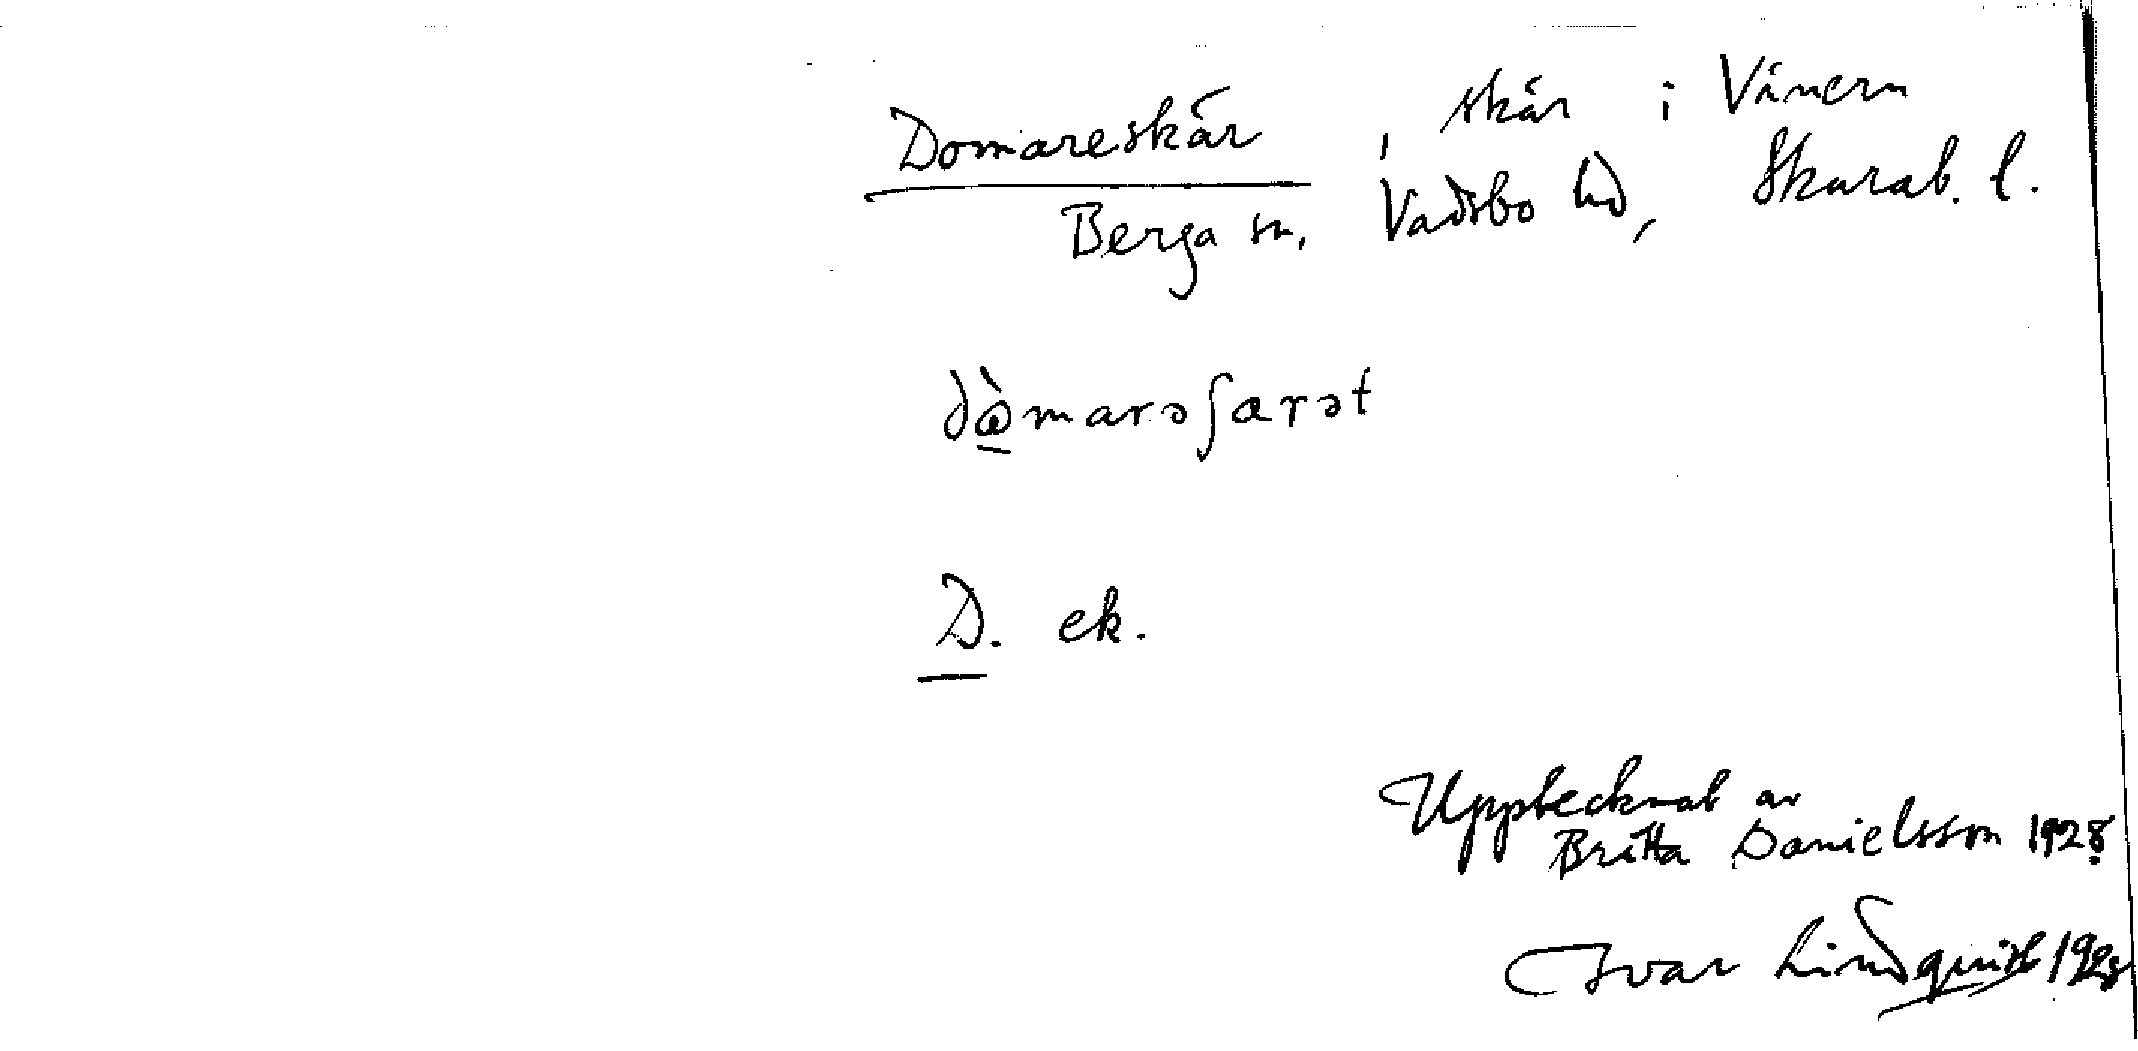 Domareskär, skär i Vänern
Berga sn, Vadsbo hd, Skarab. l.
dὼmarəʃarət
D. ek.
Upptecknat av
Britta Danielsson 1928
Ivar Lindquist 1928